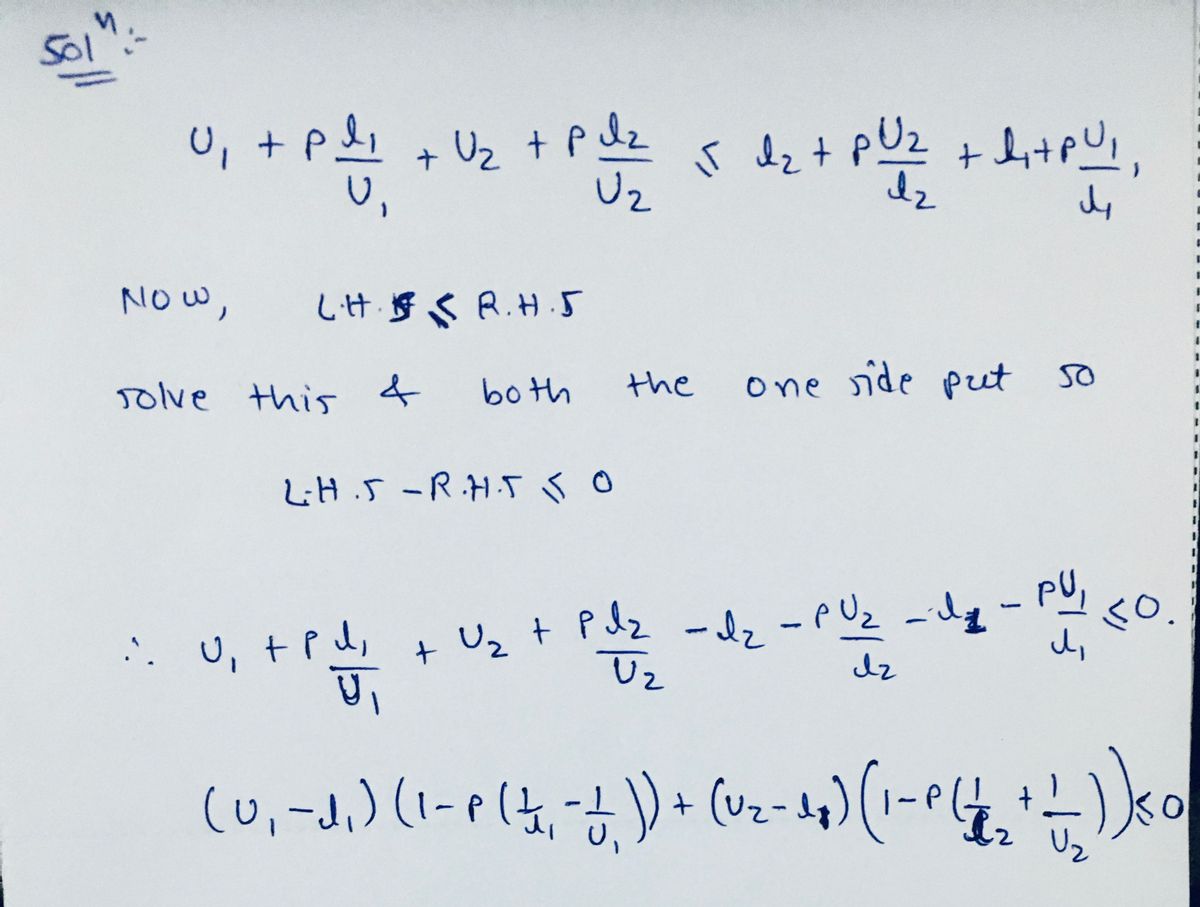 Solⁿ:-
U₁ + P l₁/U₁ + U₂ + P l₂/U₂ ≤ l₂ + P U₂/l₂ + l₁ + P U₁/l₁,
NOW, L.H.S ≤ R.H.S
solve this & both the one side put so
L.H.S - R.H.S ≤ 0
∴ U₁ + P l₁/U₁ + U₂ + P l₂/U₂ - l₂ - P U₂/l₂ - l₁ - P U₁/l₁ ≤ 0.
(U₁ - l₁) (1 - P (1/l₁ - 1/U₁)) + (U₂ - l₂) (1 - P (1/l₂ + 1/U₂)) ≤ 0